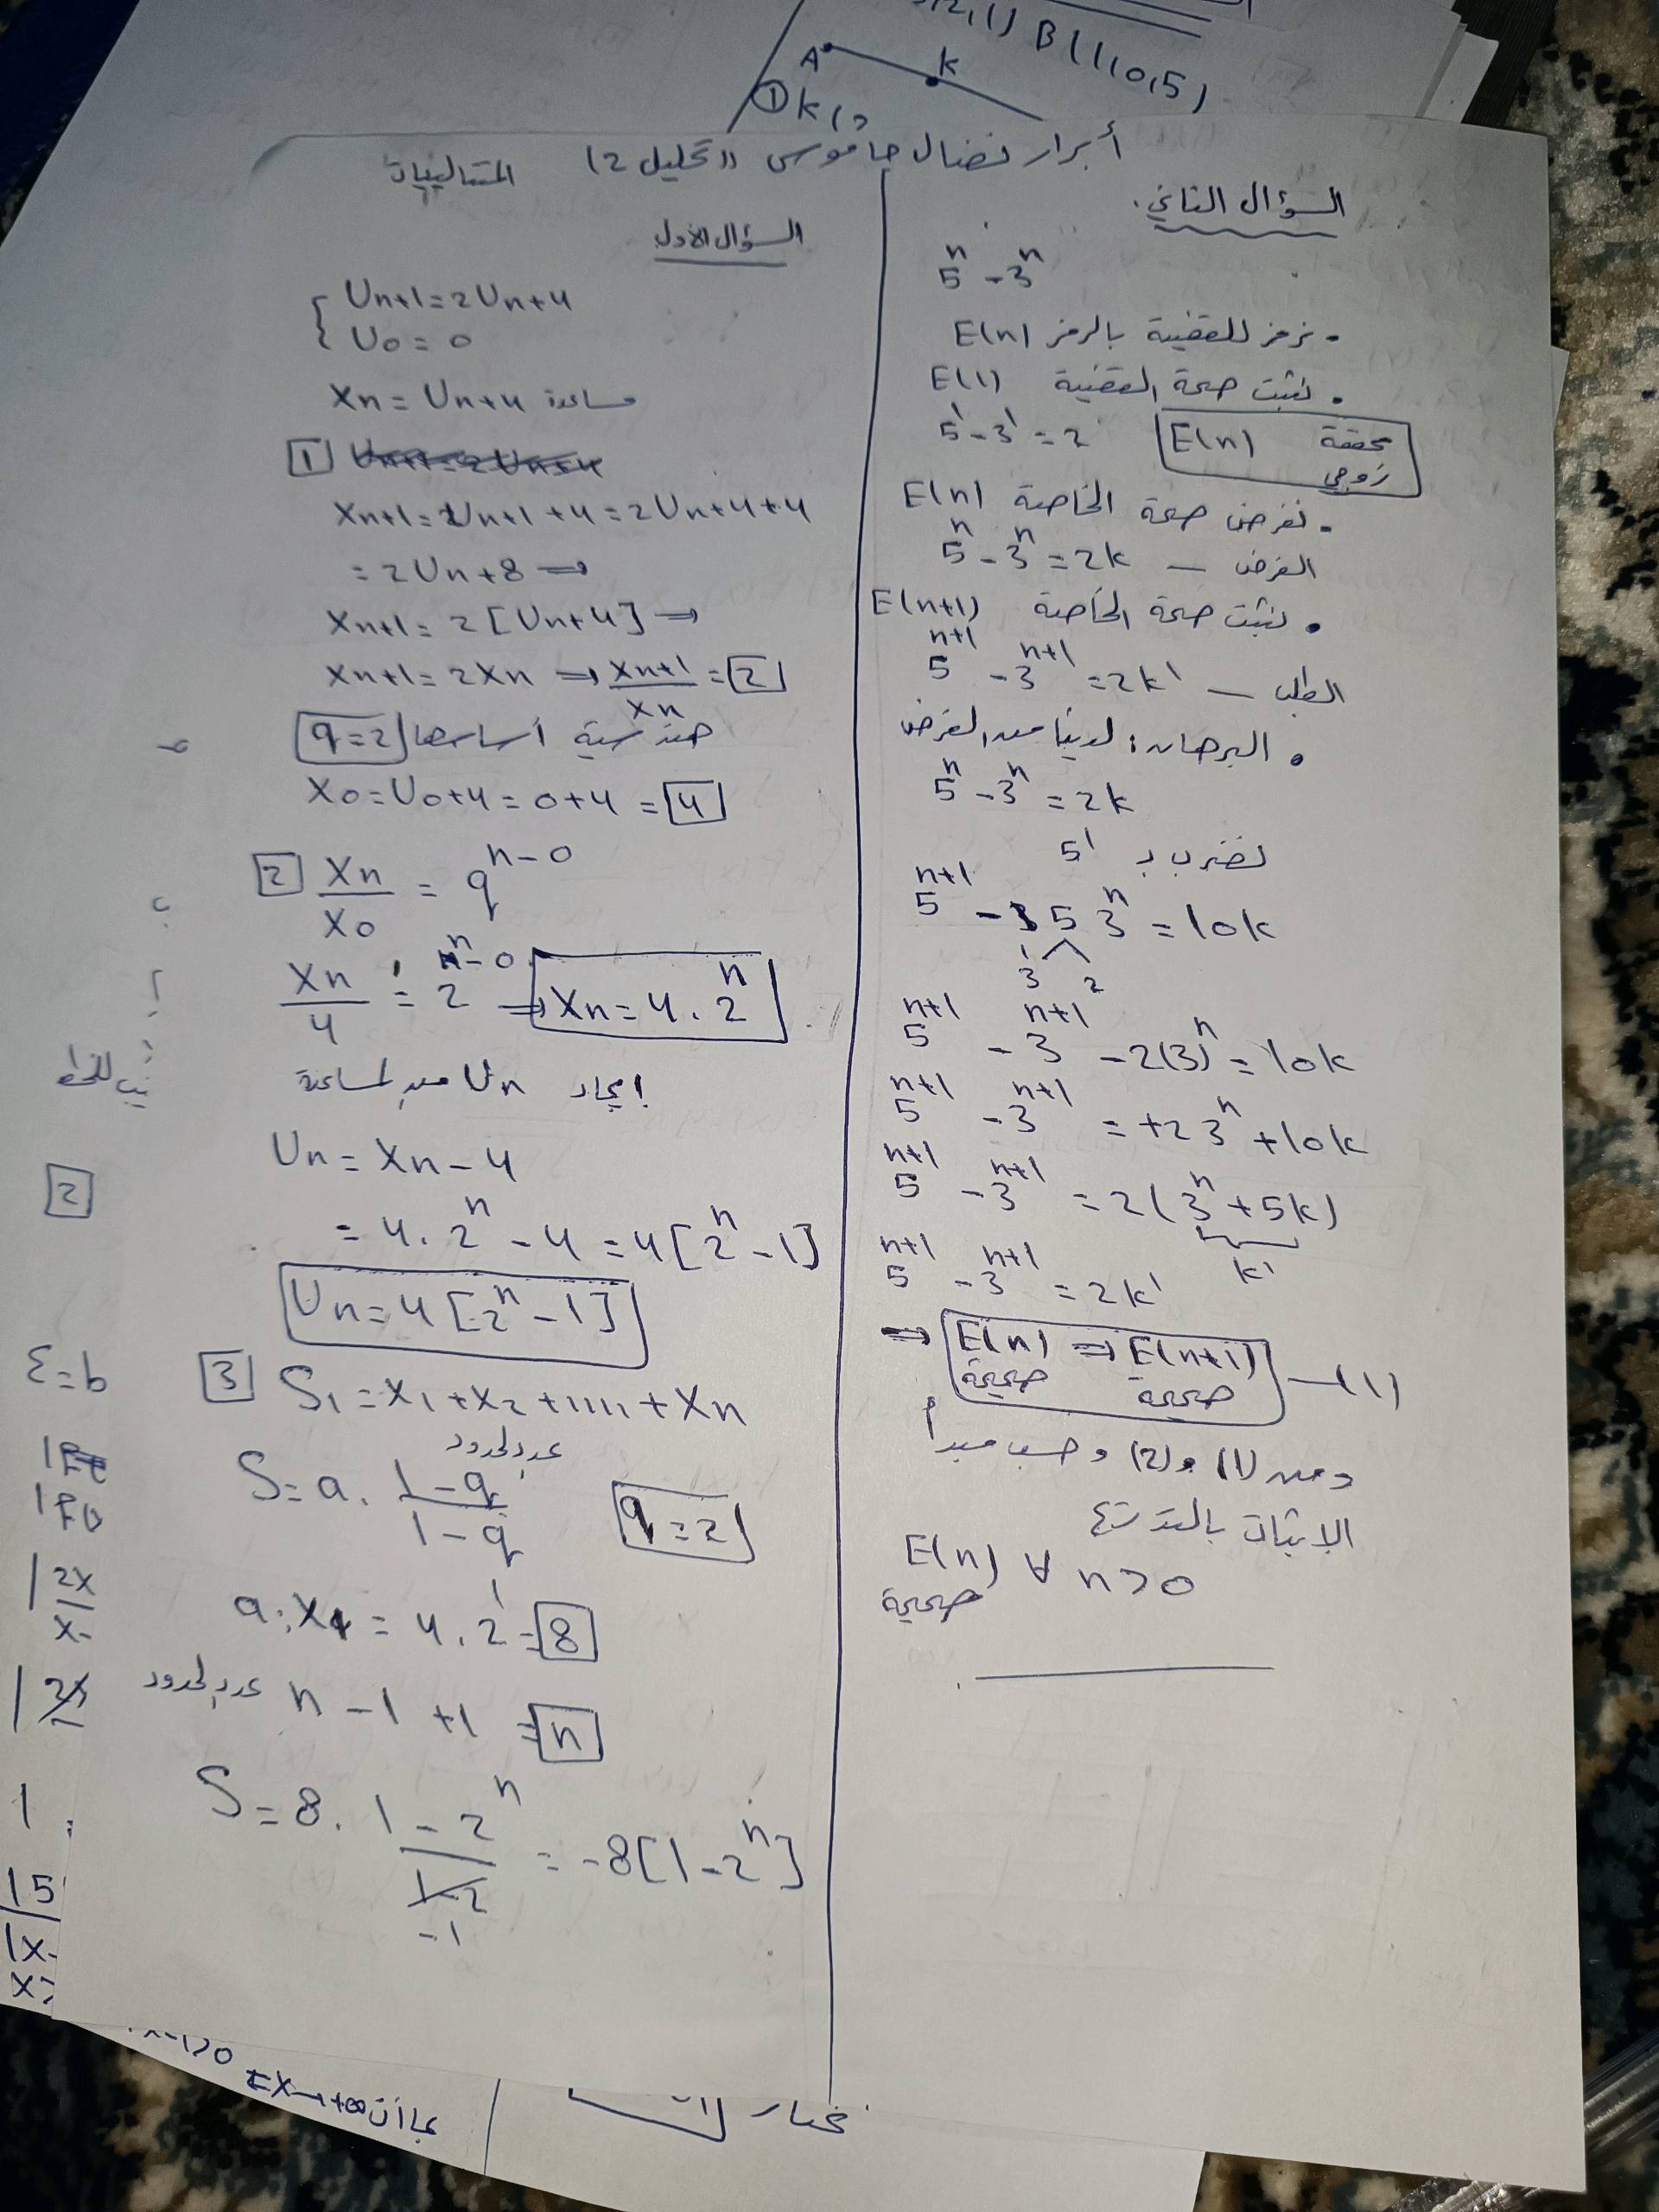 B(1,0,5)
A K
① K(
أبرار نضال جاموس «تحليل 2) المتتاليات
السؤال الأول
{ Un+1=2Un+4
U0=0
Xn=Un+4 مساعدة
1 Un+1=2Un+4
Xn+1=Un+1+4=2Un+4+4
=2Un+8⇒
Xn+1=2[Un+4]⇒
Xn+1=2Xn⇒Xn+1/Xn=2
هندسية أساسها q=2
X0=U0+4=0+4=4
2 Xn/X0=q^n-0
Xn/4=2^n-0⇒Xn=4.2^n
ايجاد Un من المساعدة
Un=Xn-4
=4.2^n-4=4[2^n-1]
Un=4[2^n-1]
3 S1=X1+X2+....+Xn
عدد الحدود
S=a.1-q/1-q q=2
a:X1=4.2^1=8
عدد الحدود n-1+1=n
S=8.1-2^n/1-2=-8[1-2^n]
-1
السؤال الثاني.
5^n-3^n
• نرمز للقضية بالرمز E(n)
• نثبت صحة القضية E(1)
5^1-3^1=2 E(n) محققة
زوجي
• نفرض صحة الخاصة E(n)
الفرض — 5^n-3^n=2k
• نثبت صحة الخاصة E(n+1)
الطلب — 5^n+1-3^n+1=2k'
• البرهان: لدينا من الفرض
5^n-3^n=2k
نضرب بـ 5^1
5^n+1-5 3^n=10k
3 2
5^n+1-3^n+1-2(3)^n=10k
5^n+1-3^n+1=+2 3^n+10k
5^n+1-3^n+1=2(3^n+5k)
k'
5^n+1-3^n+1=2k'
⇒ E(n)⇒E(n+1) —(1)
صحيحة صحيحة
ومن (1) و(2) وحسب مبدأ
الاثبات بالتدريج
E(n) ∀ n>0
صحيحة
2
3=b
1
15